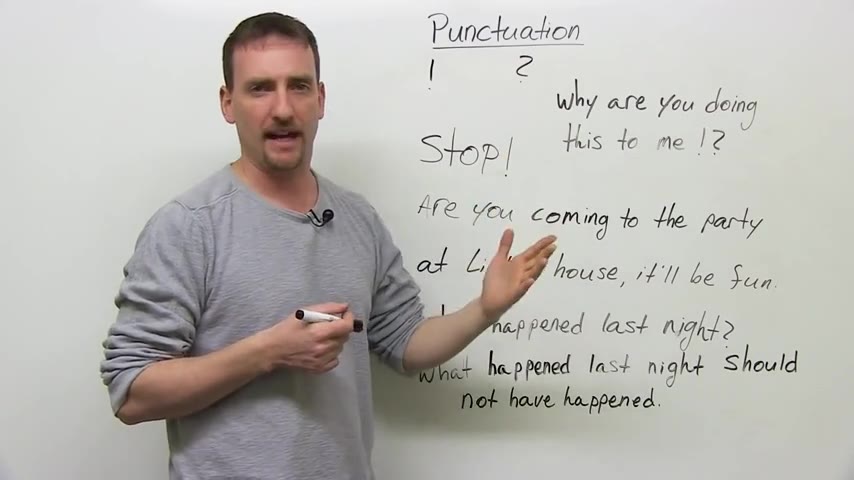 Punctuation
! ?
Why are you doing
this to me!?
Stop!
Are you coming to the party
at house, it'll be fun.
happened last night?
What happened last night should
not have happened.